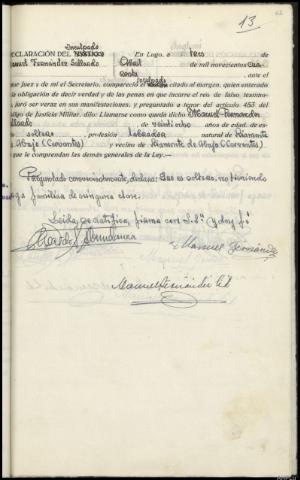 13
Inculpado
DECLARACIÓN DEL TESTIGO En Lugo, a tres de
Manuel Fernández Abril de mil novecientos cua
renta, ante el
inculpado
Juez y de mí el Secretario, compareció el citado al margen, quien enterado
la obligación de decir verdad y de las penas en que incurre el reo de falso testimo-
juró ser veraz en sus manifestaciones, y preguntado a tenor del artículo 453 del
de Justicia Militar, dijo: Llamarse como queda dicho Manuel Fernandez
de veintiocho años de edad, de es-
soltero profesión labrador natural de
Abajo (Cervantes) y vecino de de Abajo (Cervantes)
que le comprenden las demás generales de la Ley.—
Preguntado convenientemente, declara: Que es soltero, no teniendo
familia de ninguna clase.
Leída, se ratifica, firma con S.Sª y doy fé
Ricardo Abundancia
Manuel Fernández
Manuel Fernández